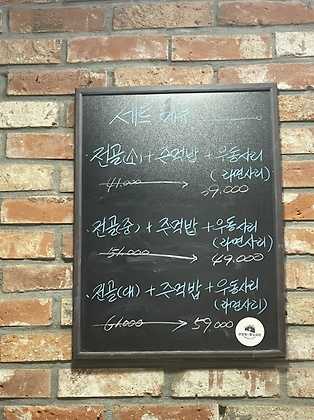 세트 메뉴
전골(소) + 주먹밥 + 우동사리
(라면사리)
41.000 → 39.000
전골(중) + 주먹밥 + 우동사리
(라면사리)
51.000 → 49.000
전골(대) + 주먹밥 + 우동사리
(라면사리)
61.000 → 59.000